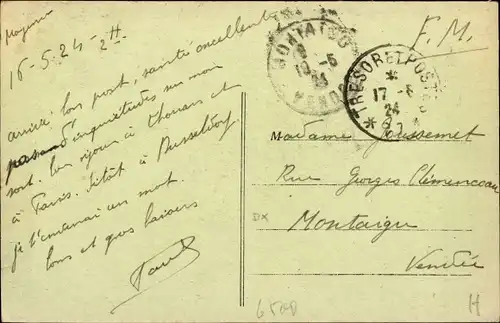 16-5-24
arrivé bon port, santé excellente
pas d'inquiétudes sur mon
sort. bon séjour à Thouars et
à Paris. sitôt à Dusseldorf
je t'enverrai un mot
bons et gros baisers
Paul
F.M.
MONTAIGU
TRESOR ET POSTES
17-5
24
Madame Jousseaumet
Rue Georges Clémenceau
Montaigu
Vendée
6500
H